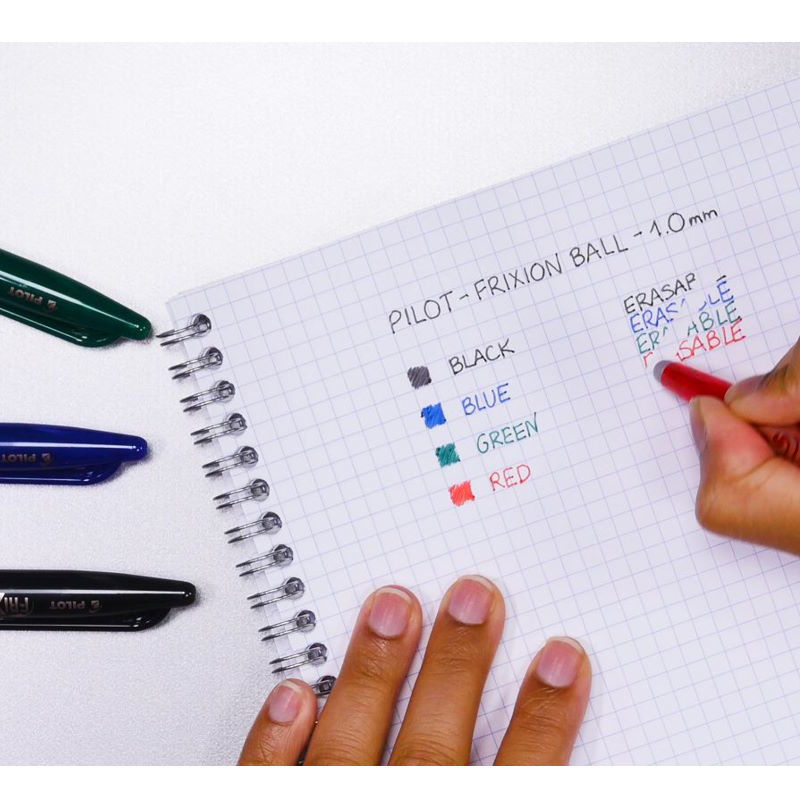 PILOT - FRIXION BALL - 1.0 mm
BLACK
BLUE
GREEN
RED
ERASABLE
ERASABLE
ERASABLE
PILOT
PILOT
PILOT